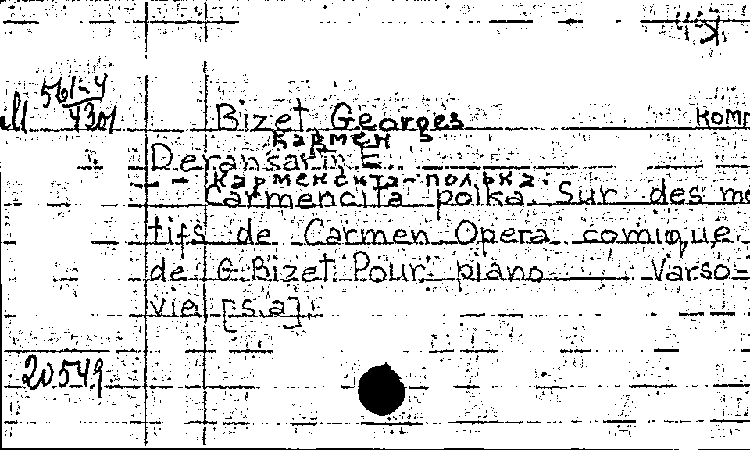 561-4
4301
Bizet Georges комп
Кармен
Deransart E.
Карменсита-полька.
Carmencita polka. Sur des mo
tifs de Carmen Opera comique
de G. Bizet. Pour piano Varso-
vie [s.a].
20549